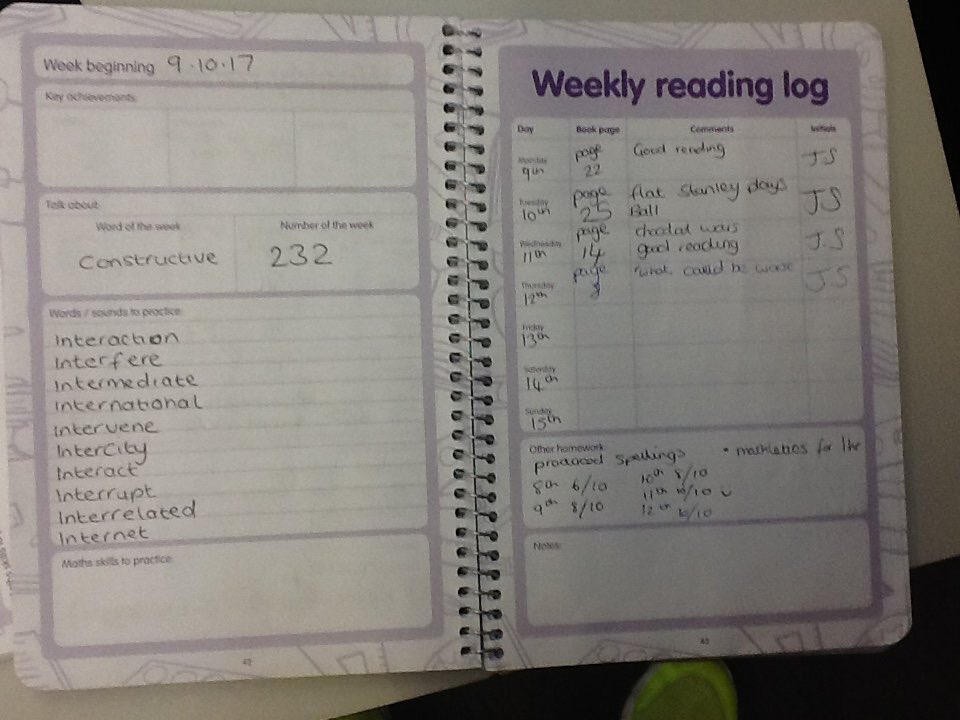 Week beginning 9.10.17
Key achievements:
Talk about:
Word of the week
Number of the week
Constructive
232
Words / sounds to practice:
Interaction
Interfere
Intermediate
International
Intervene
Intercity
Interact
Interrupt
Interrelated
Internet
Maths skills to practice:
47
Weekly reading log
Day Book page Comments Initials
Monday 9th page 22 Good reading JS
Tuesday 10th page 25 flat Stanley plays Ball JS
Wednesday 11th page 14 good reading J.S
Thursday 12th page what could be worse JS
Friday 13th
Saturday 14th
Sunday 15th
Other homework:
spellings • for 1hr
8th 6/10 10th 8/10
9th 8/10 11th /10
12th /10
Notes: